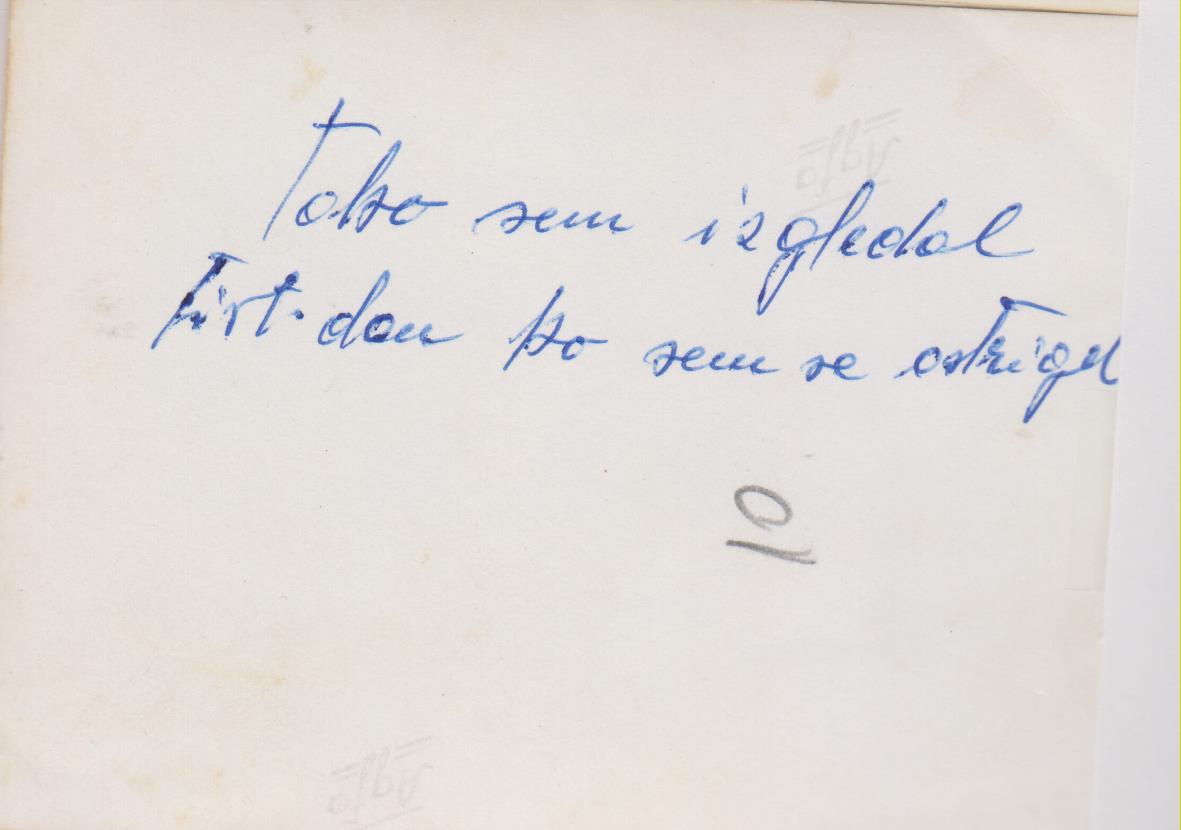 Agfa
Tako sem izgledal
tist dan ko sem se ostrigel
10
Agfa